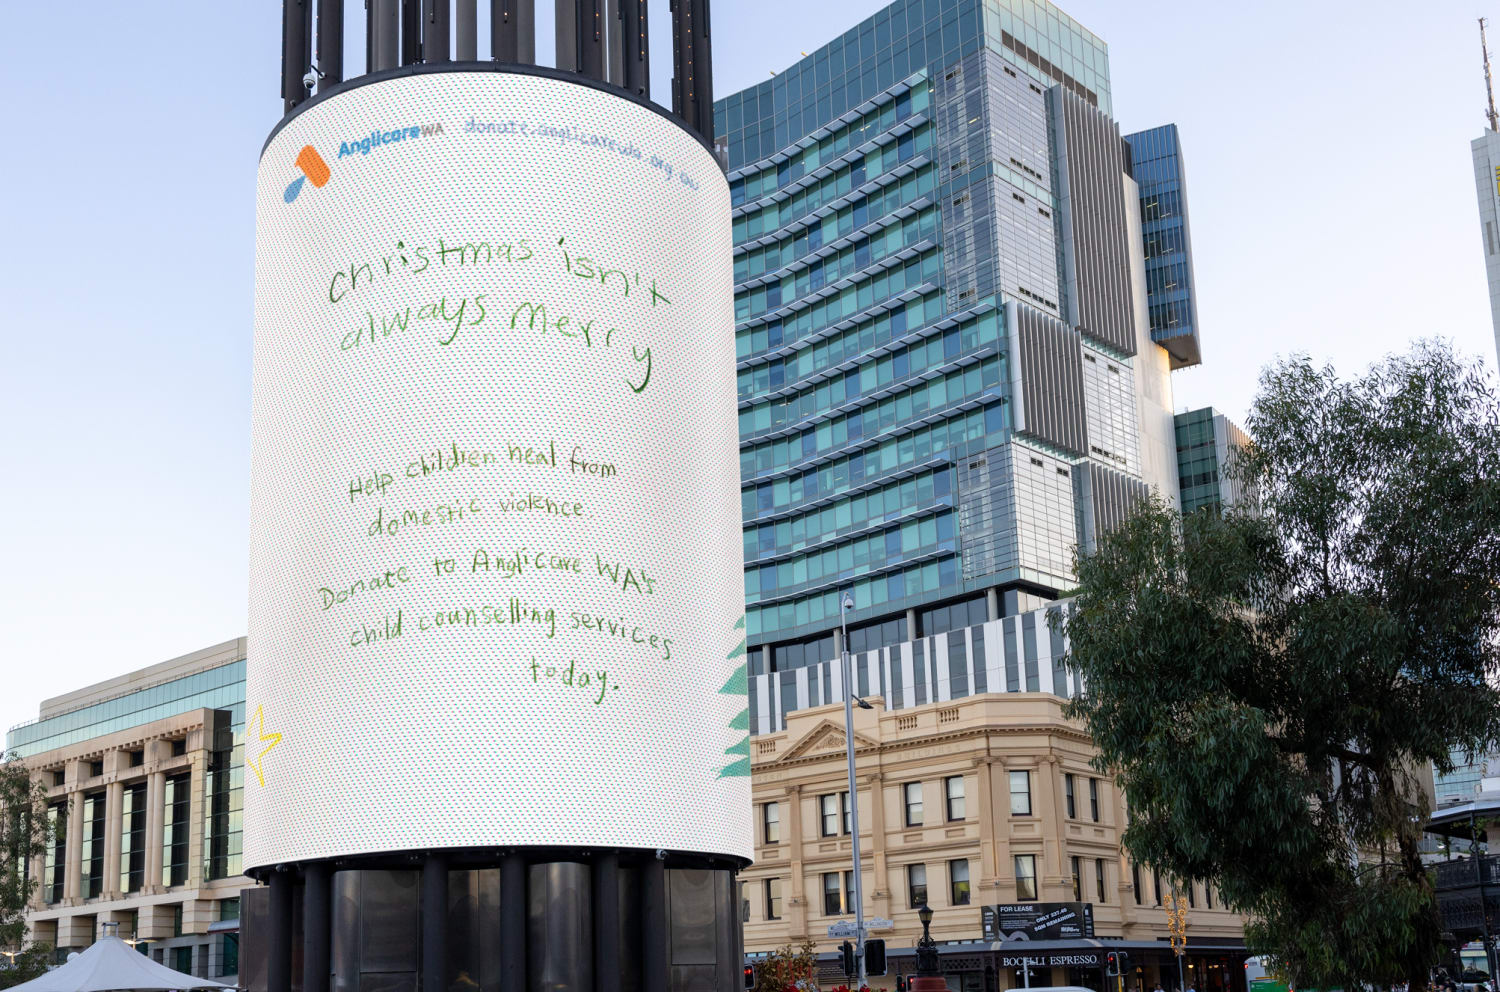 AnglicareWA donate.anglicarewa.org.au
Christmas isn't
always merry
Help children heal from
domestic violence
Donate to Anglicare WA's
child counselling services
today.
FOR LEASE
ONLY 227.40
SQM REMAINING
BOCELLI ESPRESSO